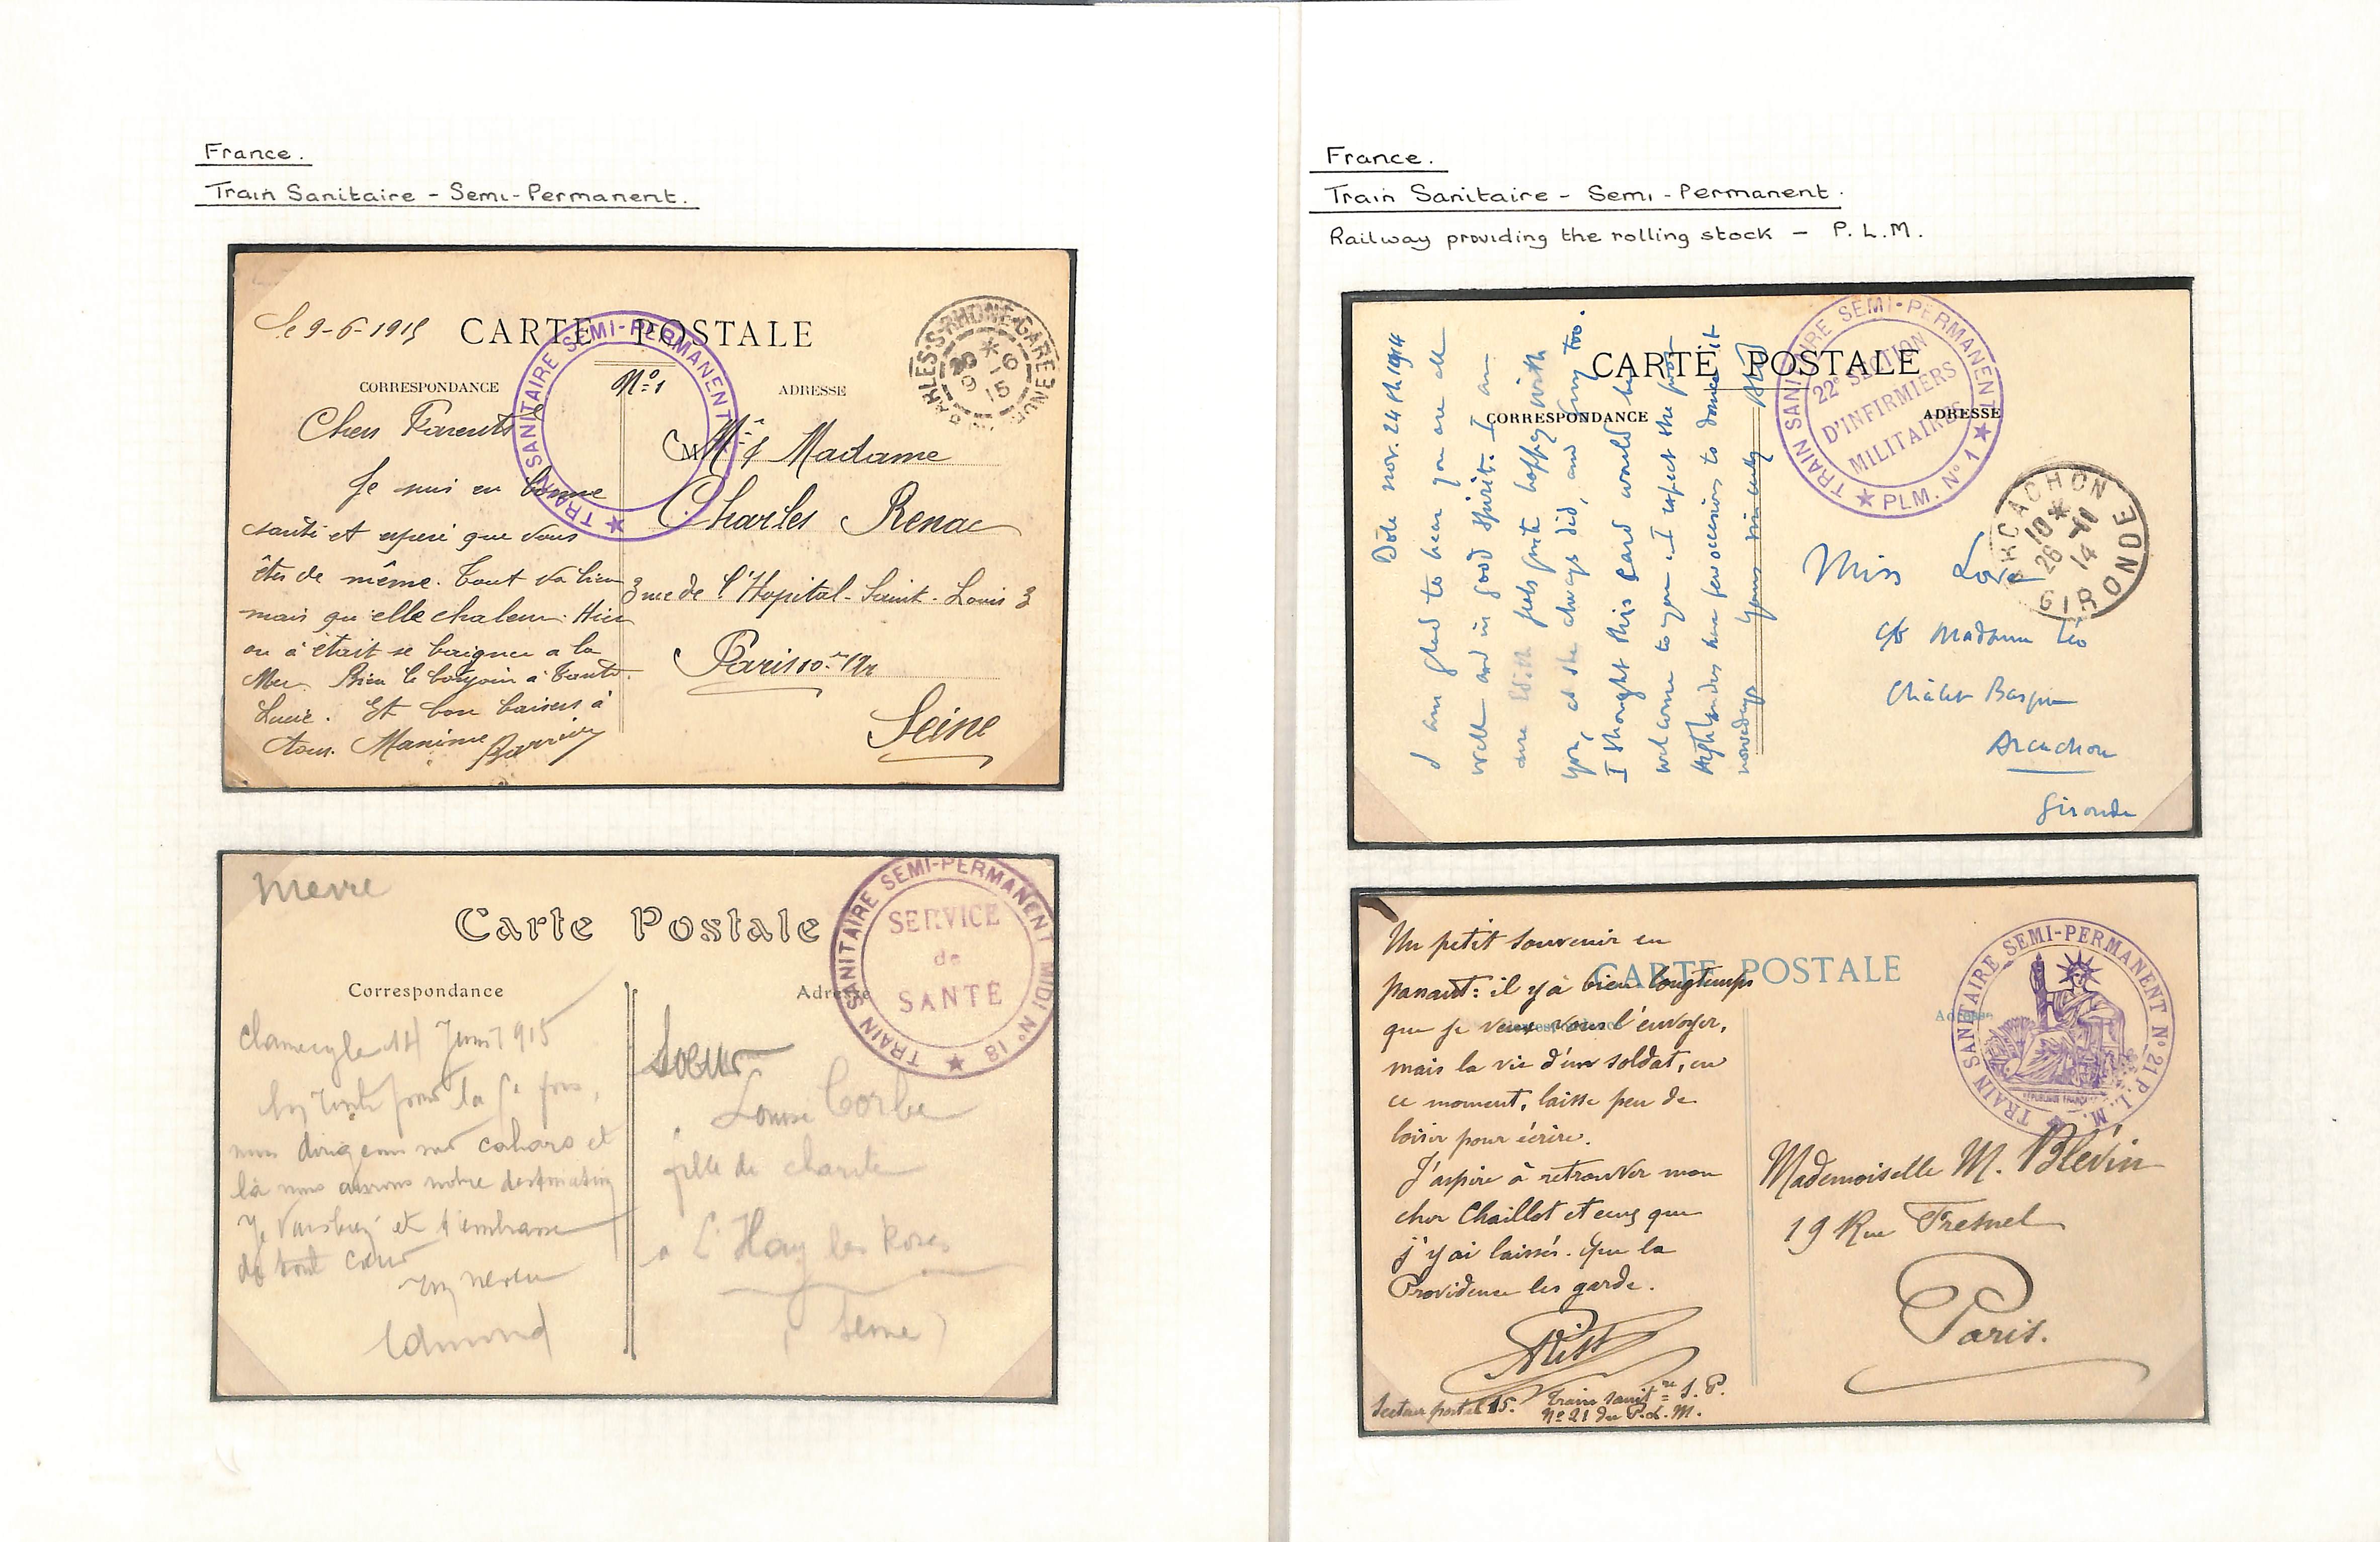 France.
Train Sanitaire - Semi-Permanent.
le 9-6-1915
CARTE POSTALE
CORRESPONDANCE
ADRESSE
TRAIN SANITAIRE SEMI-PERMANENT
N:o 1
ARLES-S-RHONE-GARE
9 -6
15
Chers Parents
Je suis en bonne
santé et espère que vous
êtes de même. Tout va bien
mais qu'elle chaleur. Hier
on a était se baigner a la
Mer. Bien le bonjour à Tante
Lucie. Et bon baisers à
tous. Maxime
M
Mr & Madame
Charles Renac
3 rue de l'Hopital-Saint-Louis 3
Paris 10
Seine
Carte Postale
Correspondance
Adresse
TRAIN SANITAIRE SEMI-PERMANENT MIDI No 18
SERVICE
de
SANTÉ
14 Juin 1915
pour la 5e fois,
nous dirigeons sur Cahors et
là nous aurons notre destination
Je et t'embrasse
de tout cœur
ton neveu
Edmond
Sœur
Louise
fille de charité
a L'Hay les Roses
(Seine)
France.
Train Sanitaire - Semi-Permanent.
Railway providing the rolling stock - P.L.M.
CARTE POSTALE
CORRESPONDANCE
ADRESSE
TRAIN SANITAIRE SEMI-PERMANENT PLM. No 1
22e SECTION
D'INFIRMIERS
MILITAIRES
ARCACHON
10 *
26 -11
14
GIRONDE
Dôle nov. 24th 1914
I am glad to hear you are all
well and in good spirit. I am
sure Edith feels quite happy with
you, as she always did, and Jimmy too.
I thought this card would be
welcome to you. I expect the poor
Highlanders have few occasions to dance it
nowadays Yours sincerely
Miss Love
c/o Madame Léo
Châlet Basque
Arcachon
Gironde
CARTE POSTALE
Correspondance
Adresse
TRAIN SANITAIRE SEMI-PERMANENT No 21 P.L.M.
Un petit souvenir en
passant: il y a bien longtemps
que je veux vous l'envoyer,
mais la vie d'un soldat, en
ce moment, laisse peu de
loisir pour écrire.
J'aspire à retrouver mon
cher Chaillot et ceux que
j'y ai laissés. Que la
Providence les garde.
Secteur postal 15. Train sanitre S.P.
No 21 du P.L.M.
Mademoiselle M. Blévin
19 Rue Fresnel
Paris.